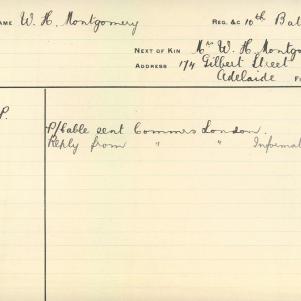 AME W. H. Montgomery REG. &C 10th Bat
NEXT OF KIN Mr W. H. Montgo
ADDRESS 174 Gilbert Street
Adelaide
P.
P/Cable sent Commrs London.
Reply from " " Informat